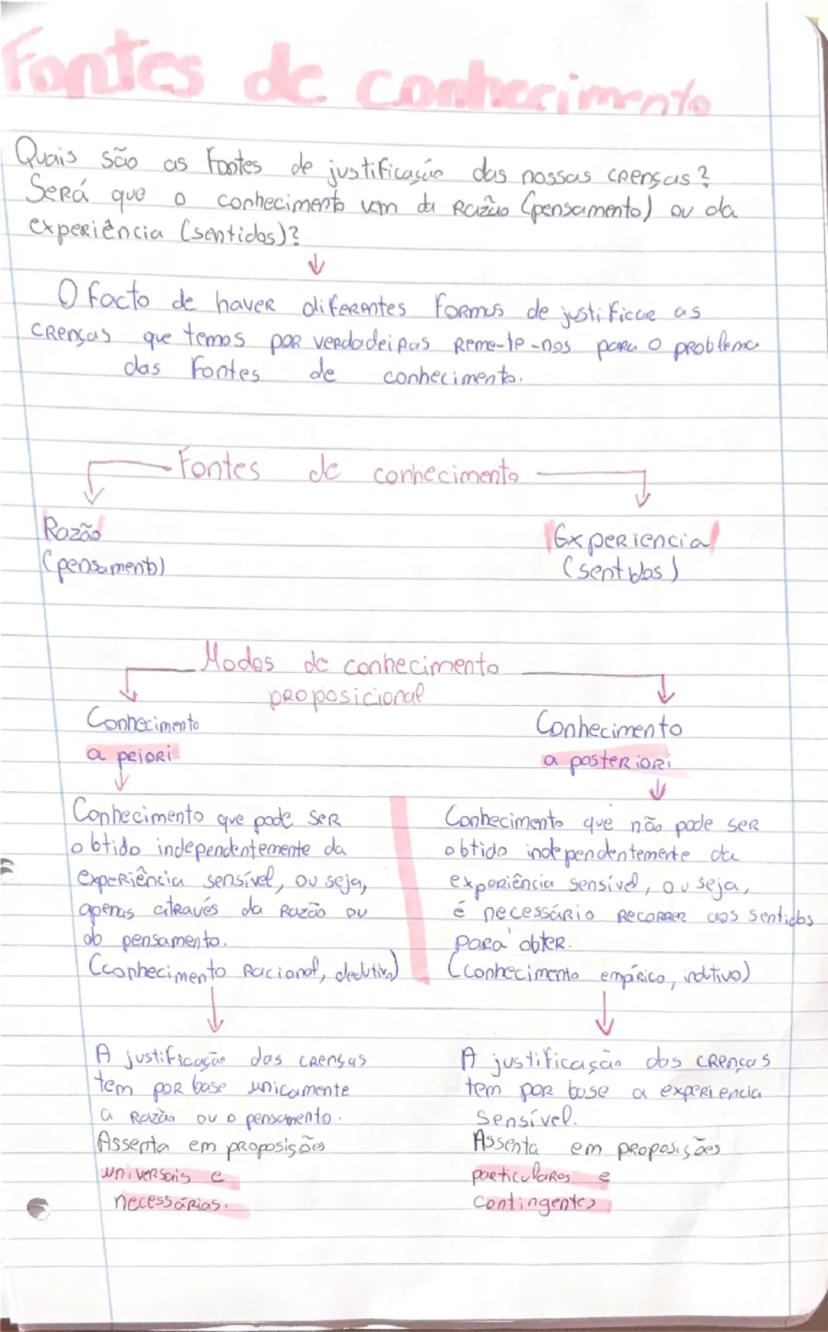 Fontes de conhecimento
Quais são as fontes de justificação das nossas crenças?
Será que o conhecimento vem da Razão (pensamento) ou da
experiência (sentidos)?
O facto de haver diferentes formas de justificar as
crenças que temos por verdadeiras reme-te-nos para o problema
das fontes de conhecimento.
Fontes de conhecimento
Razão
(pensamento)
Experiencia
(sentidos)
Modos de conhecimento
proposicional
Conhecimento
a priori
Conhecimento que pode ser
obtido independentemente da
experiência sensível, ou seja,
apenas através da Razão ou
do pensamento.
(conhecimento racional, dedutivo)
A justificação das crenças
tem por base unicamente
a razão ou o pensamento.
Assenta em proposições
universais e
necessárias.
Conhecimento
a posteriori
Conhecimento que não pode ser
obtido independentemente da
experiência sensível, ou seja,
é necessário recorrer aos sentidos
para obter.
(conhecimento empírico, indutivo)
A justificação das crenças
tem por base a experiencia
sensível.
Assenta em proposições
particulares e
contingentes